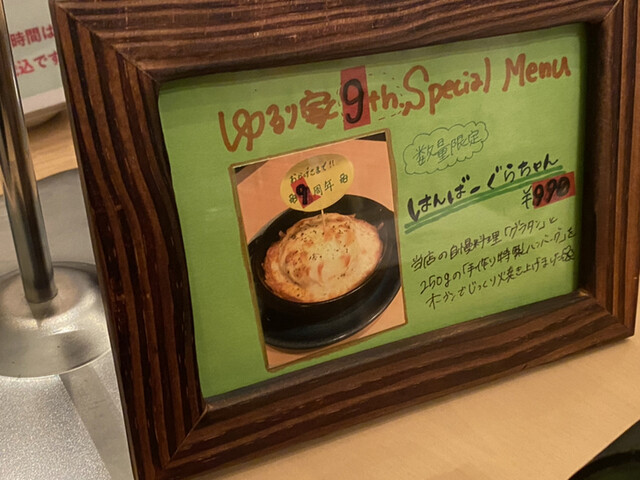 時間は
込です
ゆるり家 9th. Special Menu
数量限定
おかげさまで!!
9周年
はんばーぐらちゃん
¥990
当店の自慢料理「グラタン」と
250gの「手作り特製ハンバーグ」を
オーブンでじっくり焼き上げました